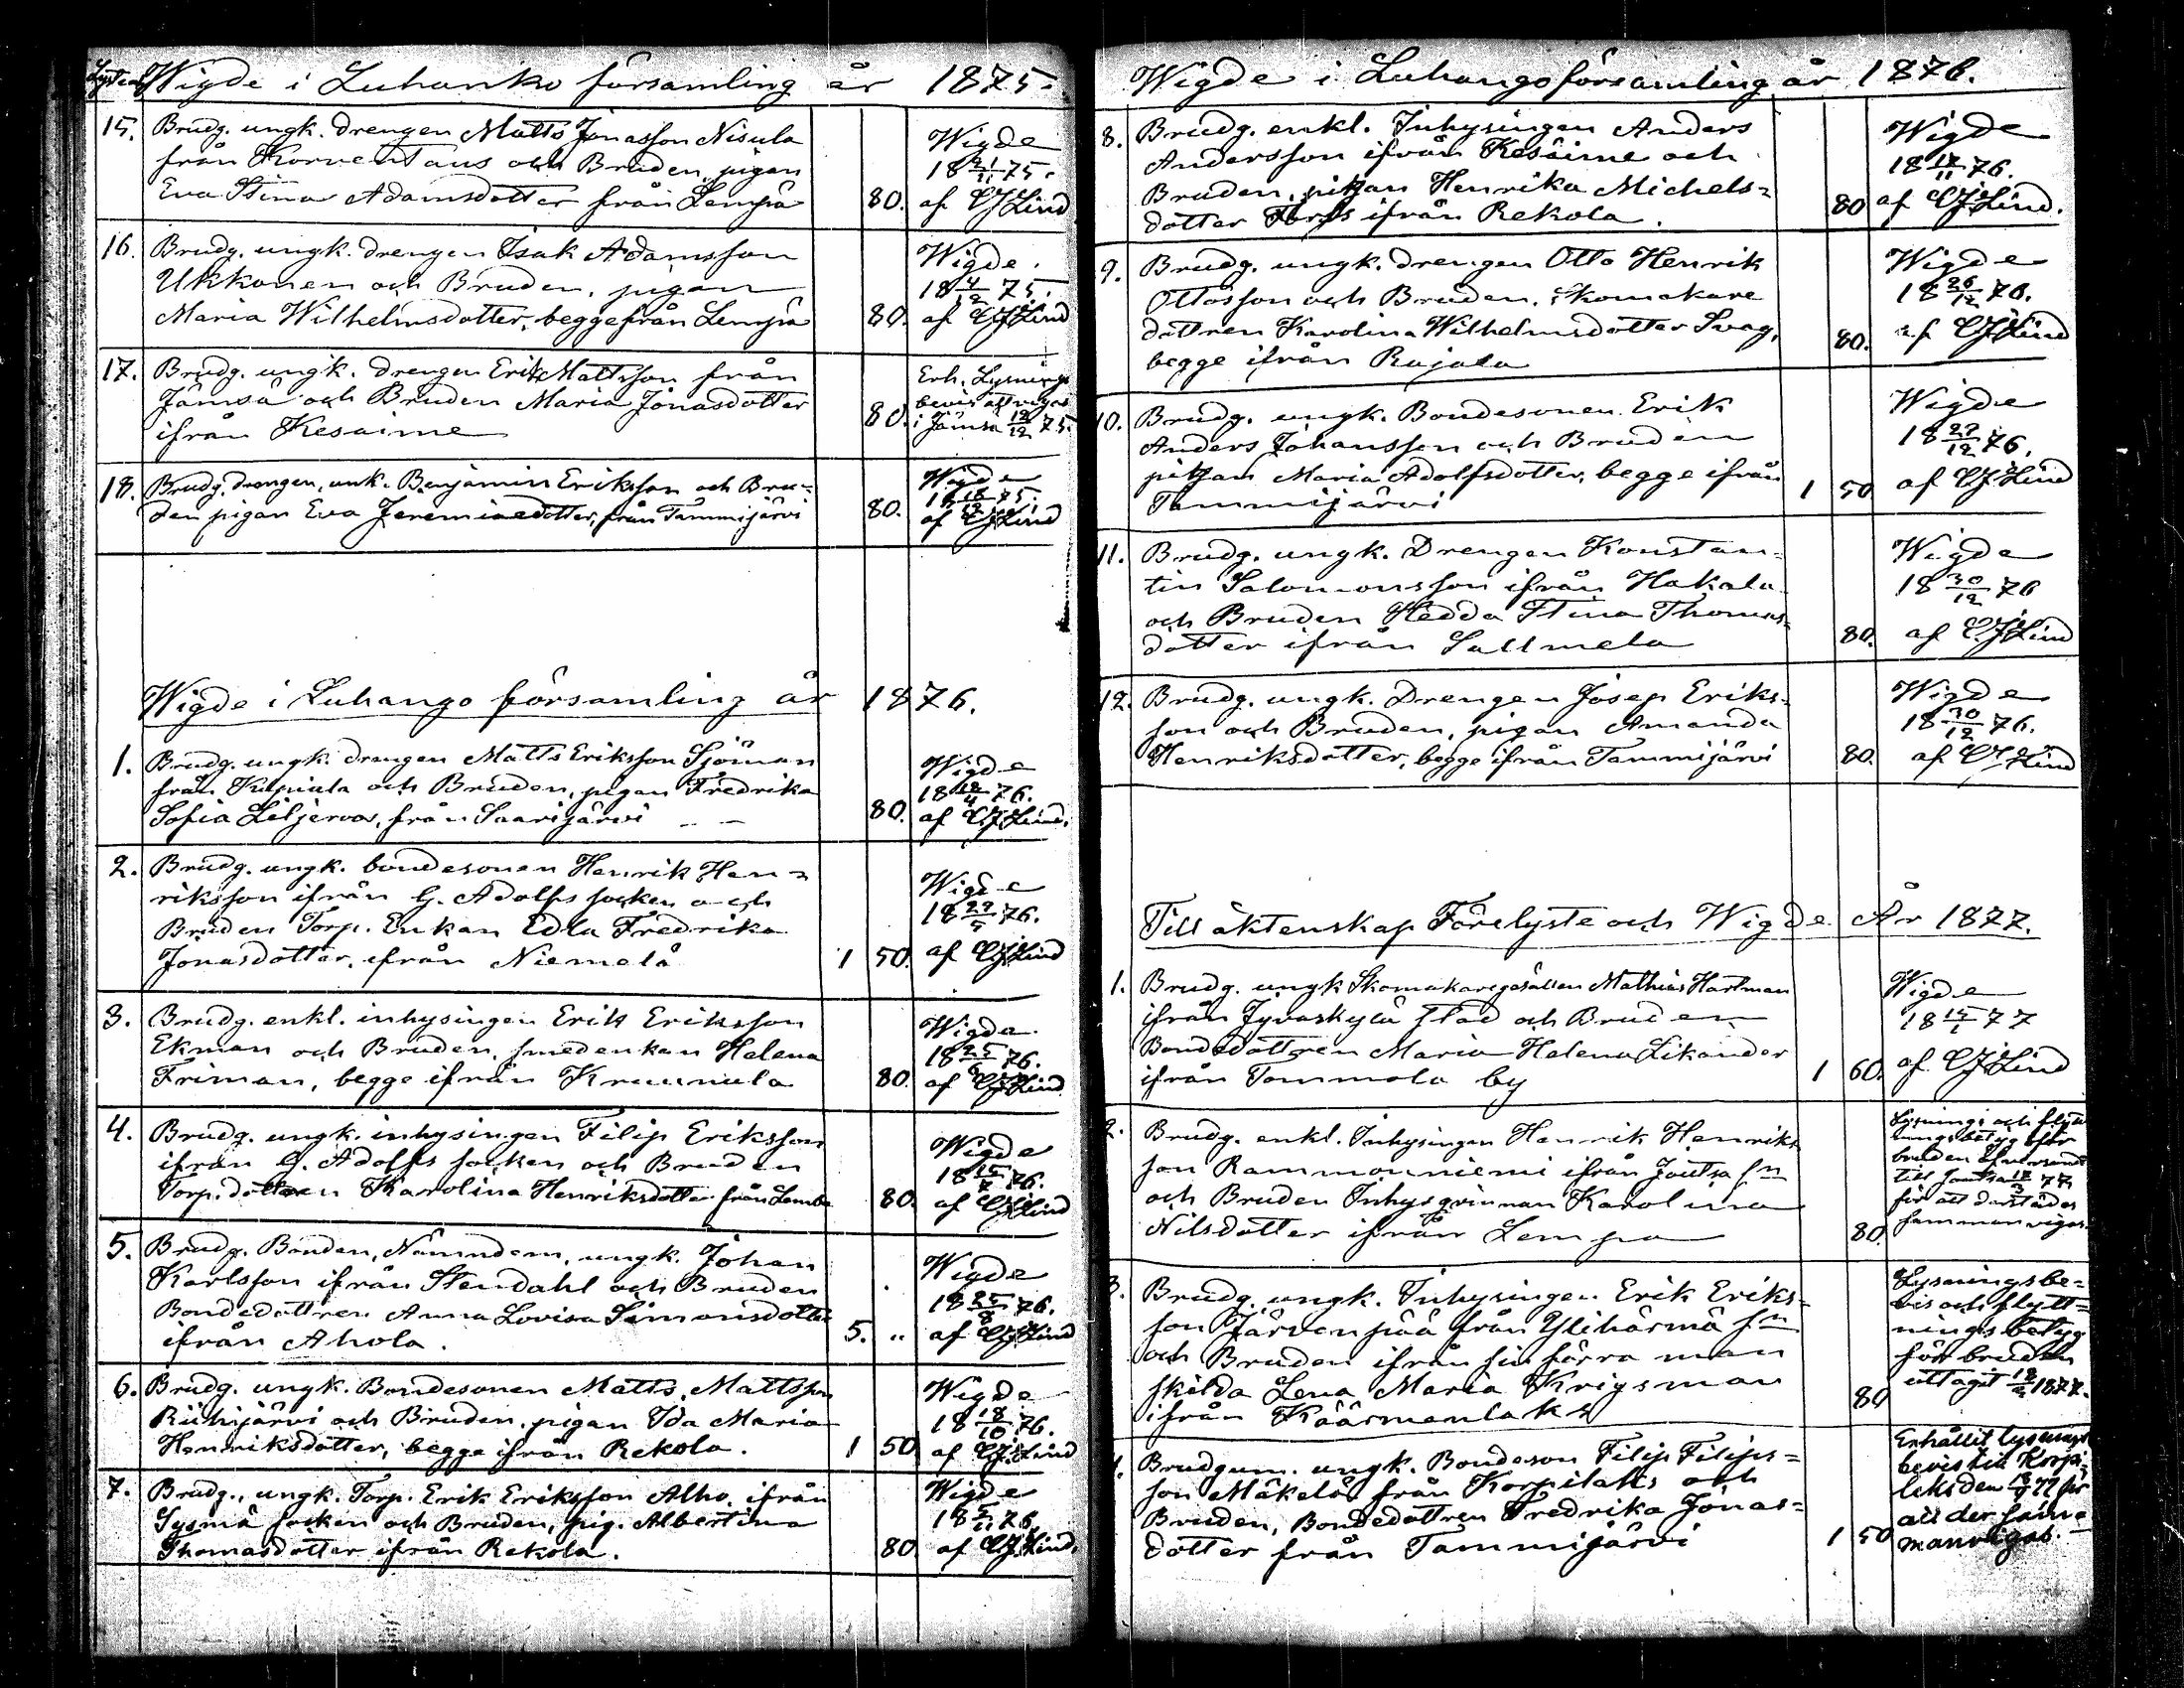 Lyst och Wigde i Luhanko församling år 1875.
15. Brudg. ungk. drengen Matts Jonasson Nisula Wigde
från Korventaus och Bruden, pigan 18 21/11 75.
Eva Stina Adamsdotter från Lempä 80. af CJLind
16. Brudg. ungk. drengen Isak Adamsson Wigde.
Ukkonen och Bruden, pigan 18 4/12 75.
Maria Wilhelmsdotter, begge från Lempä 80. af CJLind
17. Brudg. ungk. drengen Erik Mattsson från Erh. Lysnings
Jämsä och Bruden Maria Jonasdotter bevis att vigas
ifrån Kesaime 80. i Jämsä 12/12 75.
18. Brudg. drengen, unk. Benjamin Eriksson och Bru= Wigde
den pigan Eva Jeremiaedotter, från Tammijärvi 80. 18 18/12 75. af CJLind
Wigde i Luhango församling år 1876.
1. Brudg. ungk. drengen Matts Eriksson Sjöman Wigde
från Kupiula och Bruden, pigan Fredrika 18 18/4 76.
Sofia Liljerva, från Saarijärvi 80. af CJLind.
2. Brudg. ungk. bondesonen Henrik Hen= Wigde
riksson ifrån G. Adolfs socken och 18 29/5 76.
Bruden Torp. Enkan Edla Fredrika
Jonasdotter, ifrån Niemelä 1 50. af CJLind
3. Brudg. enkl. inhysingen Erik Eriksson Wigde.
Ekman och Bruden, smedenkan Helena 18 25/6 76.
Friman, begge ifrån Kruunula 80. af CJLind
4. Brudg. ungk. inhysingen Filip Eriksson Wigde
ifrån G. Adolfs socken och Bruden 18 15/7 76.
Torp. dottren Karolina Henriksdotter från Lempä 80. af CJLind
5. Brudg. Bonden, Nämndem, ungk. Johan Wigde
Karlsson ifrån Stendahl och Bruden 18 25/8 76.
Bondedottren Anna Lovisa Simonsdotter
ifrån Ahola. 5. " af CJLind
6. Brudg. ungk. Bondesonen Matts Mattsson Wigde
Riihijärvi och Bruden, pigan Ida Maria 18 18/10 76.
Henriksdotter, begge ifrån Rekola. 1 50 af CJLind
7. Brudg., ungk. Torp. Erik Eriksson Alho ifrån Wigde
Sysmä socken och Bruden, pig. Albertina 18 5/11 76.
Thomasdotter ifrån Rekola. 80 af CJLind.
Wigde i Luhango församling år 1876.
8. Brudg. enkl. Inhysingen Anders Wigde
Andersson ifrån Kesäime och 18 17/11 76.
Bruden, pigan Henrika Michels=
dotter ifrån Rekola. 80 af CJLind.
9. Brudg. ungk. drengen Otto Henrik Wigde
Ottosson och Bruden, skomakare 18 26/12 76.
dottren Karolina Wilhelmsdotter Svag, 80. af CJLind
begge ifrån Rajala
10. Brudg. ungk. Bondesonen Erik Wigde
Anders Johansson och Bruden 18 27/12 76.
pigan Maria Adolfsdotter, begge ifrån
Tammijärvi 1 50 af CJLind
11. Brudg. ungk. Drengen Konstan= Wigde
tin Salomonsson ifrån Hakala 18 30/12 76
och Bruden Hedda Stina Thomas=
dotter ifrån Sallmela 80. af CJLind
12. Brudg. ungk. Drengen Josep Eriks= Wigde
son och Bruden, pigan Amanda 18 30/12 76.
Henriksdotter, begge ifrån Tammijärvi 80. af CJLind
Till äktenskap Förelyste och Wigde År 1877.
1. Brudg. ungk Skomakaregesällen Mathias Hartman Wigde
ifrån Jyväskylä stad och Bruden 18 15/1 77
Bondedottren Maria Helena Likander
ifrån Tommola by 1 60. af CJLind
2. Brudg. enkl. Inhysingen Henrik Henriks Lysnings och flytt
son Rammonniemi ifrån Joutsa sn ningsbetyg för
och Bruden Inhysqvinnan Karolina bruden öfversändt
Nilsdotter ifrån Lempa 80. till Joutsa 77
för att derstädes
sammanvigas.
3. Brudg. ungk. Inhysingen Erik Eriks= Lysningsbe=
son Järvenpää från Ylihärmä sn vis och flytt=
och Bruden ifrån sin förra man ningsbetyg
skilda Lena Maria Krigsman för bruden
ifrån Käärmenlaks 80 uttaget 1877.
4. Brudgum. ungk. Bondeson Filip Filips= Erhållit lysnings
son Mäkelä från Korpilaks och bevis till Korpi=
Bruden, Bondedottren Fredrika Jonas= laks den 77 för
dotter från Tammijärvi 1 50 att der samma
manvigas.